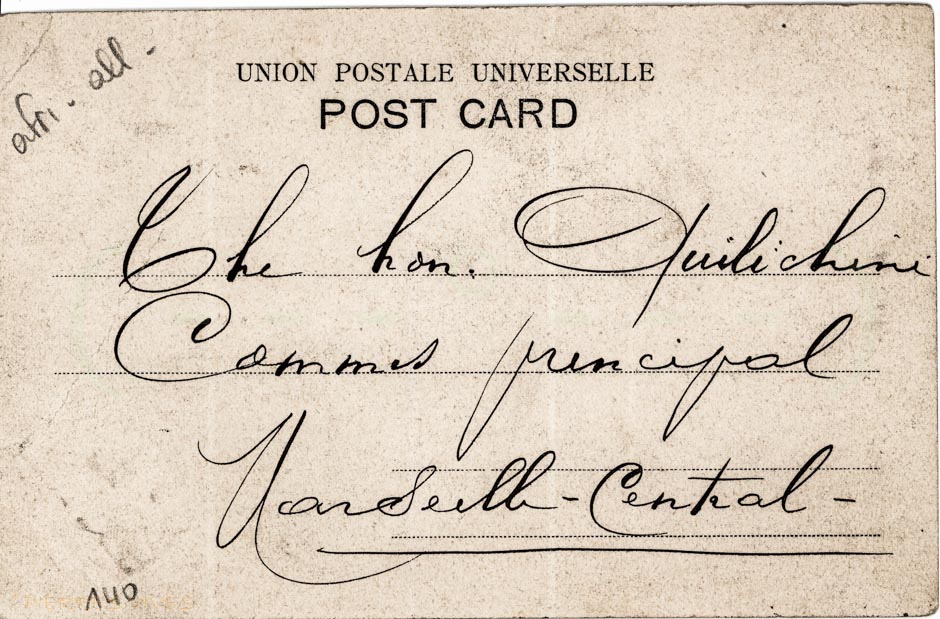 afri. all -
UNION POSTALE UNIVERSELLE
POST CARD
The hon. Quilichini
Commis principal
Marseille - Central -
140